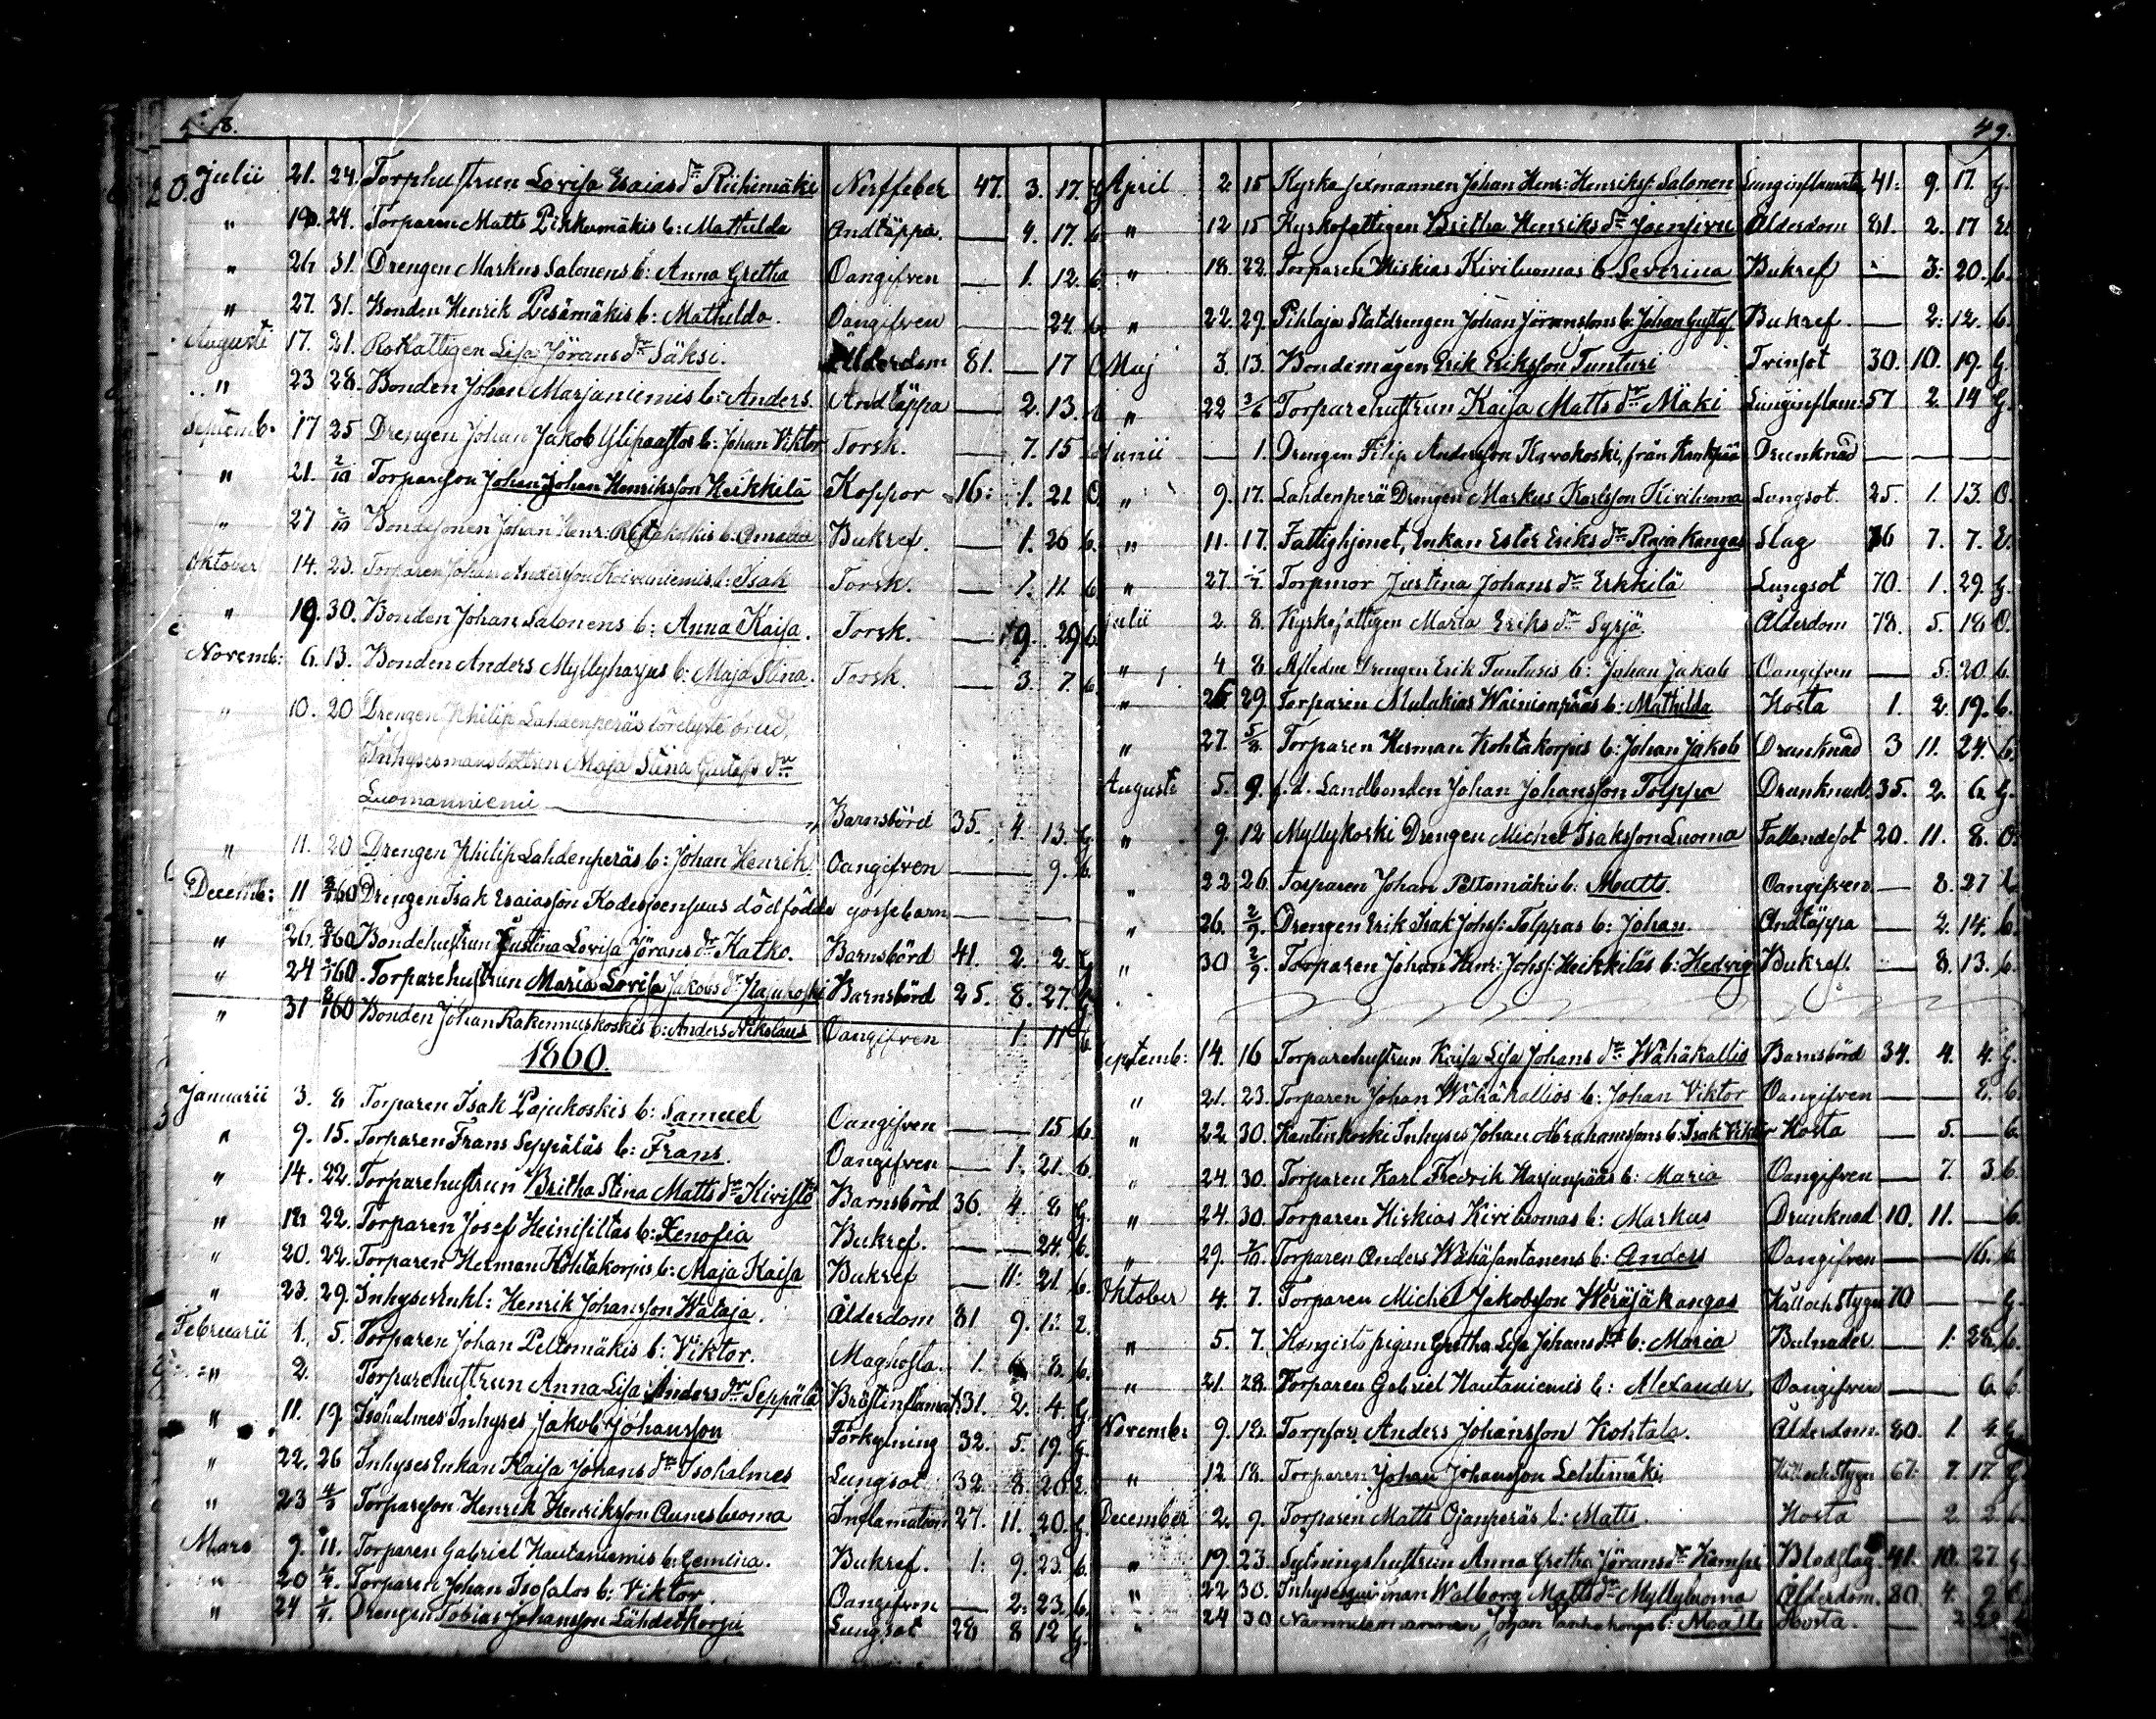 48.
Julii 21. 24. Torphustrun Lovisa Esaiasdr Riihimäki Nerffeber 47. 3. 17. G
" 19. 24. Torparen Matts Pikkumäkis b: Mathilda Andtäppa. — 4. 17. b.
" 26 31. Drengen Markus Salonens b: Anna Gretha Oangifven — 1. 12. b.
" 27. 31. Bonden Henrik Pesämäkis b: Mathilda. Oangifven — — 24. b.
Augusti 17. 21. Rotfattigen Lisa Jöransdr Säksi. Ålderdom 81. — 17 O
" 23 28. Bonden Johan Marjaniemis b: Anders. Andtäppa — 2. 13. b.
Septemb. 17 25 Drengen Johan Jakob Ylipaastos b: Johan Viktor Torsk. — 7. 15
" 21. 2/10 Torparson Johan Johan Henriksson Heikkilä Koppor 16: 1. 21 O
" 27 2/10 Bondesonen Johan Henr: b: Amalia Bukref. — 1. 26 b.
Oktober 14. 23. Torparen Johan Andersson Koivuniemis b: Isak Torsk. — 1. 11. b
" 19. 30. Bonden Johan Salonens b: Anna Kaisa. Torsk. — 9. 29 b
Novemb: 6. 13. Bonden Anders Myllyharjus b: Maja Stina. Torsk. — 3. 7. b.
" 10. 20 Drengen Philip Lahdenperäs förelyste brud,
Inhysesmansdottren Maja Stina Gustafsdr
Luomanniemi — Barnsbörd 35. 4. 13. G.
" 11. 20 Drengen Philip Lahdenperäs b: Johan Henrik Oangifven — — 9. b.
Decemb: 11 8/1 60 Drengen Isak Esaiasson Kodesjoensuus dödfödde gossebarn — — —
" 26. 8/1 60 Bondehustrun Justina Lovisa Jöransdr Katko. Barnsbörd 41. 2. 2. G
" 24 1/1 60. Torparehustrun Maria Lovisa Jakobsdr Pajukoski Barnsbörd 25. 8. 27. G
" 31 8/1 60 Bonden Johan Rakennuskoskis b: Anders Nikolaus Oangifven 1. 11 b
1860.
Januarii 3. 8 Torparen Isak Pajukoskis b: Samuel Oangifven — — 15 b.
" 9. 15. Torparen Frans Seppäläs b: Frans. Oangifven — 1. 21. b
" 14. 22. Torparehustrun Britha Stina Mattsdr Kivistö Barnsbörd 36. 4. 8 G.
" 18 22. Torparen Josef Heinisiltas b: Xenofia Bukref. — — 24. b.
" 20. 22. Torparen Herman Kohtakorpis b: Maja Kaisa Bukref — 11. 21 b.
" 23. 29. Inhyses Enkl: Henrik Johansson Wataja. Ålderdom 81 9. 1.
Februarii 1. 5. Torparen Johan Peltomäkis b: Viktor. Maghosta. 1. 8. b.
" 2. Torparehustrun Anna Lisa Andersdr Seppälä Bröstinflamat: 31. 2. 4. G.
" 11. 19 Isohalmes Inhyses Jakob Johansson Förkylning 32. 5. 19. G.
" 22. 26 Inhyses Enkan Kaisa Johansdr Isohalmes Lungsot 32. 8. 20
" 23 4/3 Torpareson Henrik Henriksson Aunesluoma Inflamation 27. 11. 20. G.
Mars 9. 11. Torparen Gabriel Hautaniemis b: Gemina. Bukref. 1. 9. 23. b.
" 20 1/4. Torparen Johan Isosalos b: Viktor. Oangifven — 2. 23. b.
" 24 1/4. Drengen Tobias Johansson Lähdetkorpi Lungsot 28 8 12 G.
49.
April 2. 15 Kyrkosexmannen Johan Henr: Henrikss: Salonen Lunginflamat: 41. 9. 17. G.
" 12 15 Kyrkofattigen Britha Henriksdr Joensivu Ålderdom 81. 2. 17
" 18. 22. Torparen Hiskias Kiviluomas b: Severina Bukref — 3. 20. b.
" 22. 29. Pihlaja Statdrengen Johan Jöranssons b: Johan Gustaf Bukref. — 2. 12. b.
Maj 3. 13. Bondemågen Erik Eriksson Tunturi Tvinsot 30. 10. 19. G
" 22 3/6 Torparehustrun Kaisa Mattsdr Mäki Lunginflam: 57 2. 14 G.
Junii — 1. Drengen Filip Andersson Kovakoski, från Kankpää Drunknad — — —
" 9. 17. Lahdenperä Drengen Markus Karlsson Kiviluoma Lungsot. 25. 1. 13. O.
" 11. 17. Fattighjonet, Enkan Ester Eriksdr Rajakangas Slag 76 7. 7. E.
" 27. 1/7 Torpmor Justina Johansdr Erkkilä Lungsot 70. 1. 29. G.
Julii 2 8. Kyrkofattigen Maria Eriksdr Syrjä. Ålderdom 78. 5. 18 O.
" 4 8 Aflidne Drengen Erik Tunturis b: Johan Jakob Oangifven — 5. 20. b.
" 25 29. Torparen Malakias Wainionpääs b: Mathilda Hosta 1. 2. 19. b.
" 27. 5/8. Torparen Herman Kohtakorpis b: Johan Jakob Drunknad 3 11. 24. b.
Augusti 5. 9. f.d. Landbonden Johan Johansson Tolppa Drunknad. 35. 2. 6. G.
" 9. 12 Myllykoski Drengen Michel Isaksson Luoma Fallandesot 20. 11. 8. O.
" 22 26. Torparen Johan Peltomäkis b: Matts. Oangifven. — 8. 27
" 26. 2/9. Drengen Erik Isak Johss: Tolppas b: Johan. Andtäppa — 2. 14. b.
" 30 2/9. Torparen Johan Henr: Johss: Heikkiläs b: Hedvig Bukref. — 8. 13. b.
Septemb: 14. 16 Torparehustrun Kaisa Lisa Johansdr Wähäkallio Barnsbörd 34. 4. 4. G.
" 21. 23. Torparen Johan Wähäkallios b: Johan Viktor Oangifven — — 8. b.
" 22. 30. Kantinkoski Inhyses Johan Abrahamssons b: Isak Viktor Hosta — 5. — b.
" 24. 30. Torparen Karl Fredrik Harjunpääs b: Maria Oangifven — 7. 3. b.
" 24. 30. Torparen Hiskias Kiviluomas b: Markus Drunknad 10. 11. — b.
" 29. 7/10. Torparen Anders Wähäsantanens b: Anders Oangifven — — 16. b.
Oktober 4. 7. Torparen Michel Jakobsson Heräjäkangas Håll och Stygn 70 — — G.
" 5. 7. Kongistö pigan Gretha Lisa Johansdrs b: Maria Bulnader — 1. 28. b.
" 21. 28. Torparen Gabriel Hautaniemis b: Alexander Oangifven — — 6. b.
Novemb: 9. 18. Torpfar Anders Johansson Kohtala. Ålderdom. 80. 1. 4. G
" 12 18. Torparen Johan Johansson Lehtimäki Håll och Stygn 67. 7. 17. G
December 2. 9. Torparen Matts Ojanperäs b: Matts. Hosta — 2. 2. b.
" 19. 23. Sytningshustrun Anna Gretha Jöransdr Kamppi Blodslag 41. 10. 27. G
" 22 30. Inhysesqvinnan Walborg Mattsdr Myllyluoma Ålderdom. 80. 4. 9
" 24 30 Nämndemannen Johan b: Matts Hosta. —